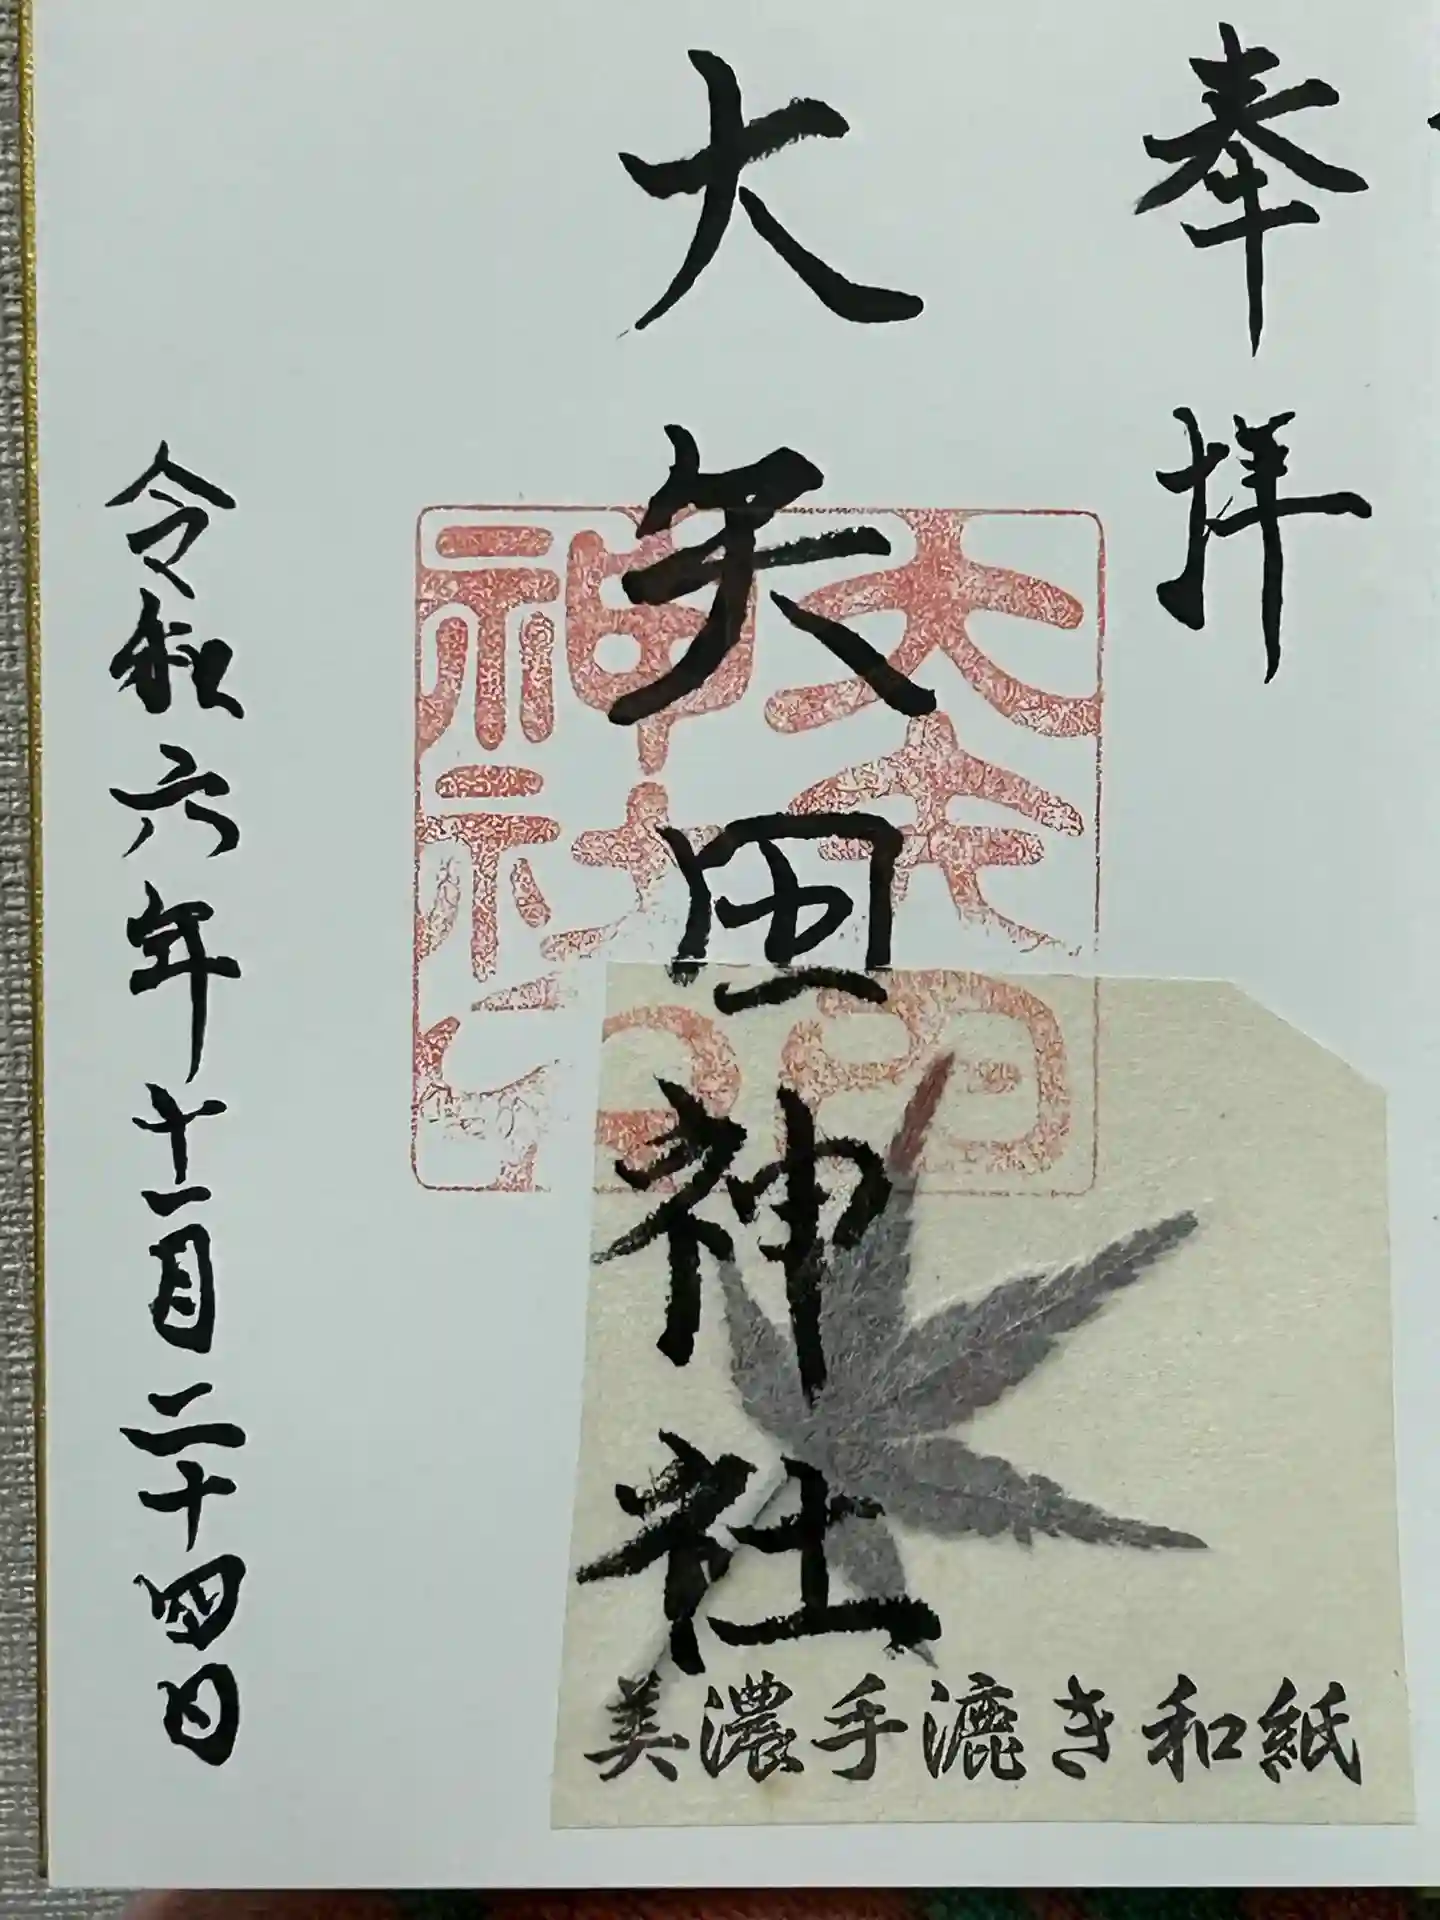 奉拝
大矢田神社
大矢田
神社之印
美濃手漉き和紙
令和六年十一月二十四日